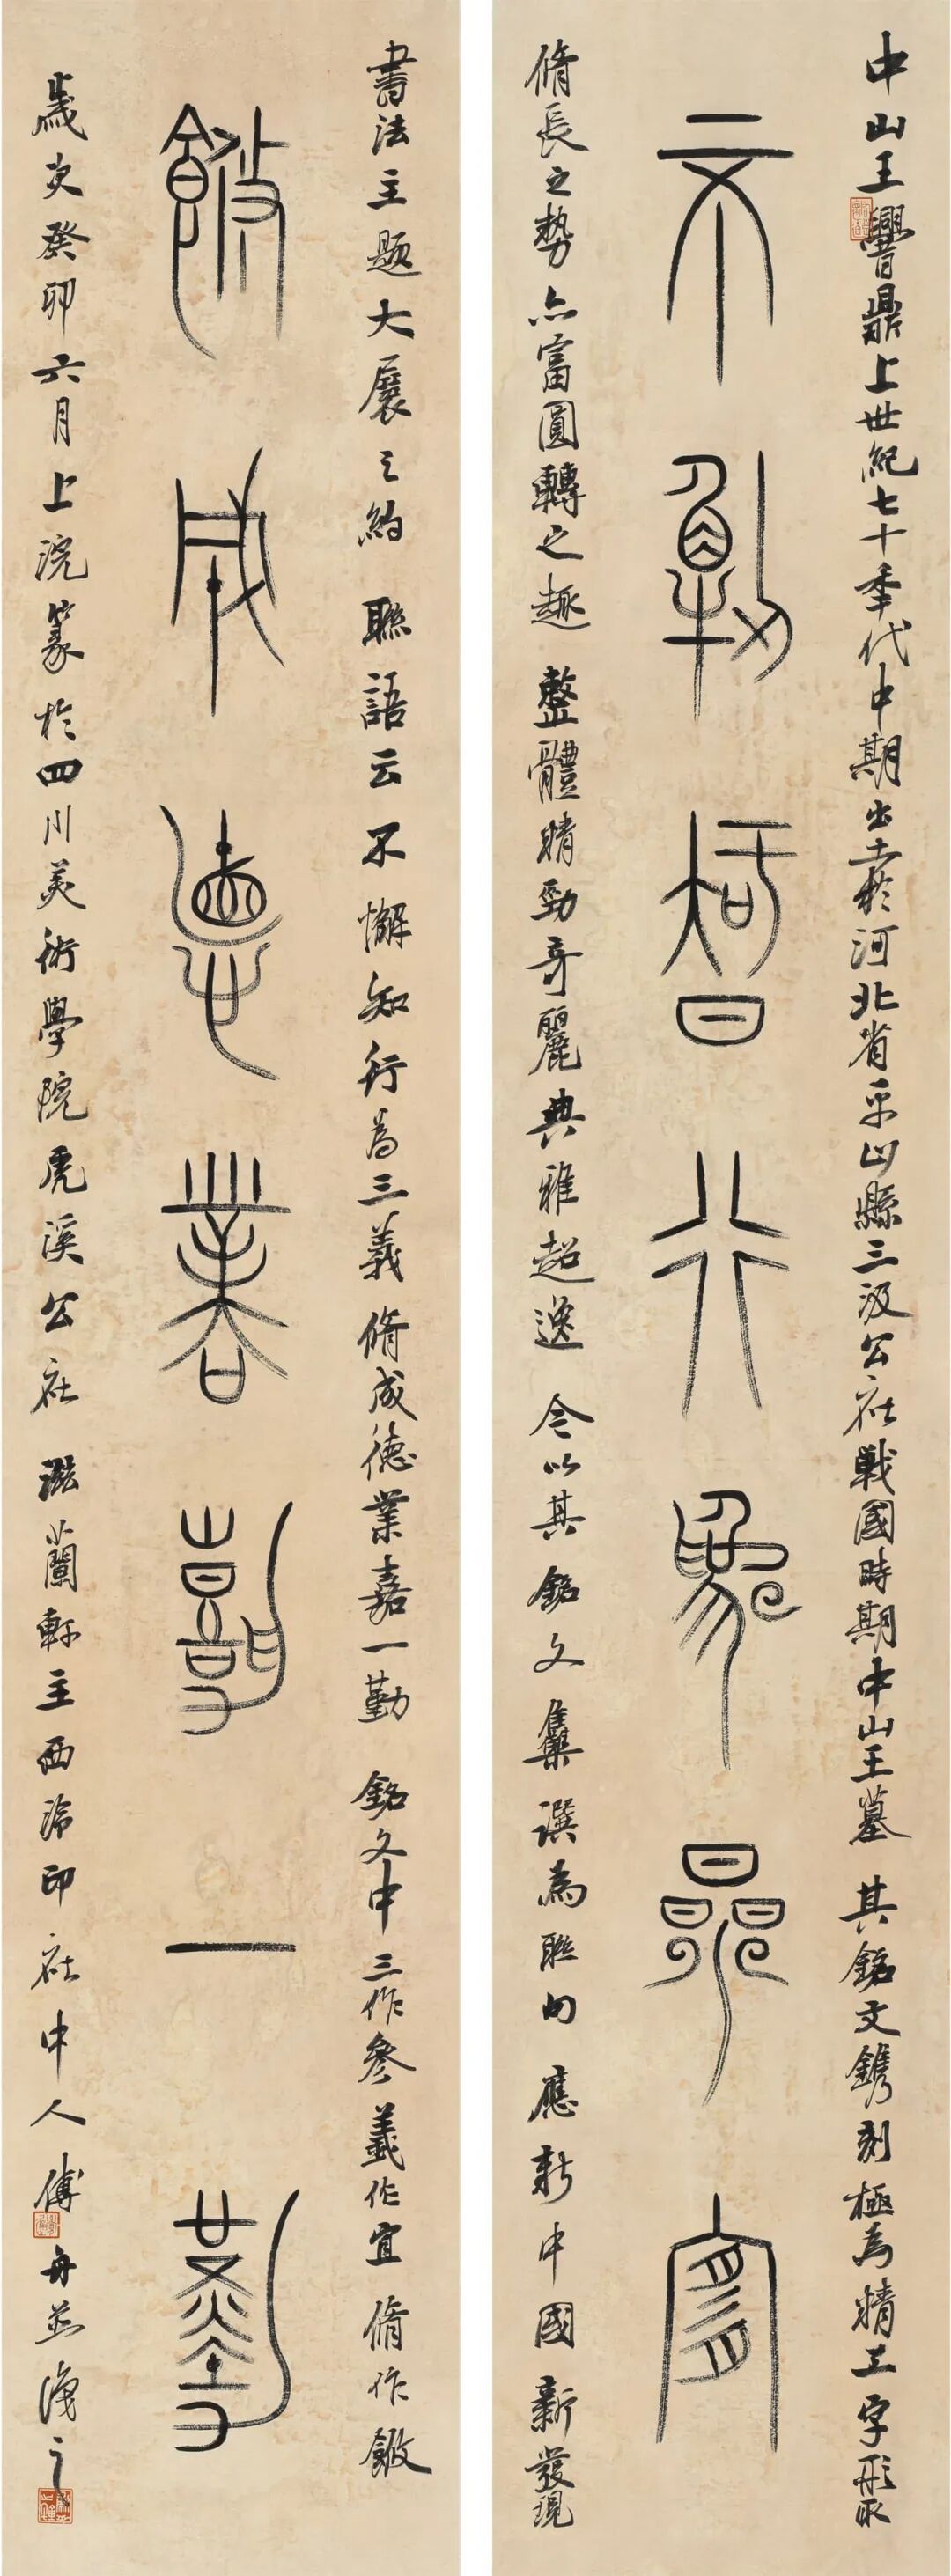 中山王鼎上世紀七十季代中期出土於河北省平山縣三汲公社戰國時期中山王墓其銘文鐫刻極為精工字形取
不懈知行為參宜
脩長之勢亦富圓轉之趣整體精勁奇麗典雅超逸今以其銘文集譔為聯句應新中國新發現
書法主題大展之約聯語云不懈知行為三義脩成德業嘉一勤銘文中三作參義作宜脩作
脩成德業嘉一勤
歲次癸卯六月上浣篆於四川美術學院虎溪公社滋蘭軒主西泠印社中人傅舟並識之